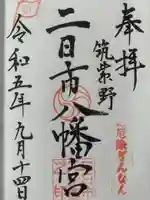 奉拝
筑紫野
二日市八幡宮
令和五年九月十四日